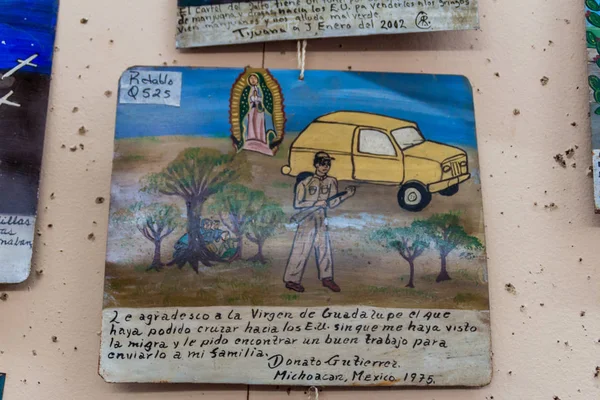 El cartel de
de marijuana y desde hacia los E.U. pa venderlos
Tijuana a 3 Enero del 2002
Retablo
Q525
Le agradesco a la Virgen de Guadalupe el que
haya podido cruzar hacia los E.U. sin que me haya visto
la migra y le pido encontrar un buen trabajo para
enviarlo a mi familia.
Donato Gutierrez.
Michoacan, Mexico 1975.